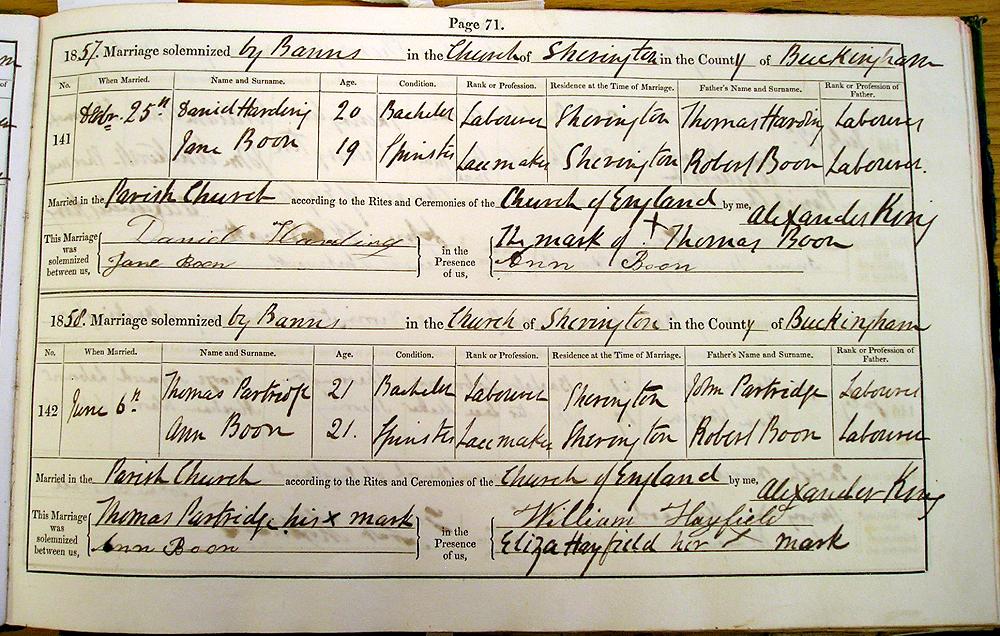 Page 71.
1857. Marriage solemnized by Banns in the Church of Sherington in the County of Buckingham
No. When Married. Name and Surname. Age. Condition. Rank or Profession. Residence at the Time of Marriage. Father's Name and Surname. Rank or Profession of Father.
141 Decbr. 25th Daniel Harding 20 Bachelor Labourer Sherington Thomas Harding Labourer
Jane Boon 19 Spinster Lacemaker Sherington Robert Boon Labourer.
Married in the Parish Church according to the Rites and Ceremonies of the Church of England by me, Alexander King
This Marriage was solemnized between us, Daniel Harding in the Presence of us, The mark of X Thomas Boon
Jane Boon Ann Boon
1858. Marriage solemnized by Banns in the Church of Sherington in the County of Buckingham
No. When Married. Name and Surname. Age. Condition. Rank or Profession. Residence at the Time of Marriage. Father's Name and Surname. Rank or Profession of Father.
142 June 6th Thomas Partridge 21 Bachelor Labourer Sherington John Partridge Labourer
Ann Boon 21. Spinster Lacemaker Sherington Robert Boon Labourer
Married in the Parish Church according to the Rites and Ceremonies of the Church of England by me, Alexander King
This Marriage was solemnized between us, Thomas Partridge his x mark in the Presence of us, William Hayfield
Ann Boon Eliza Hayfield her x mark